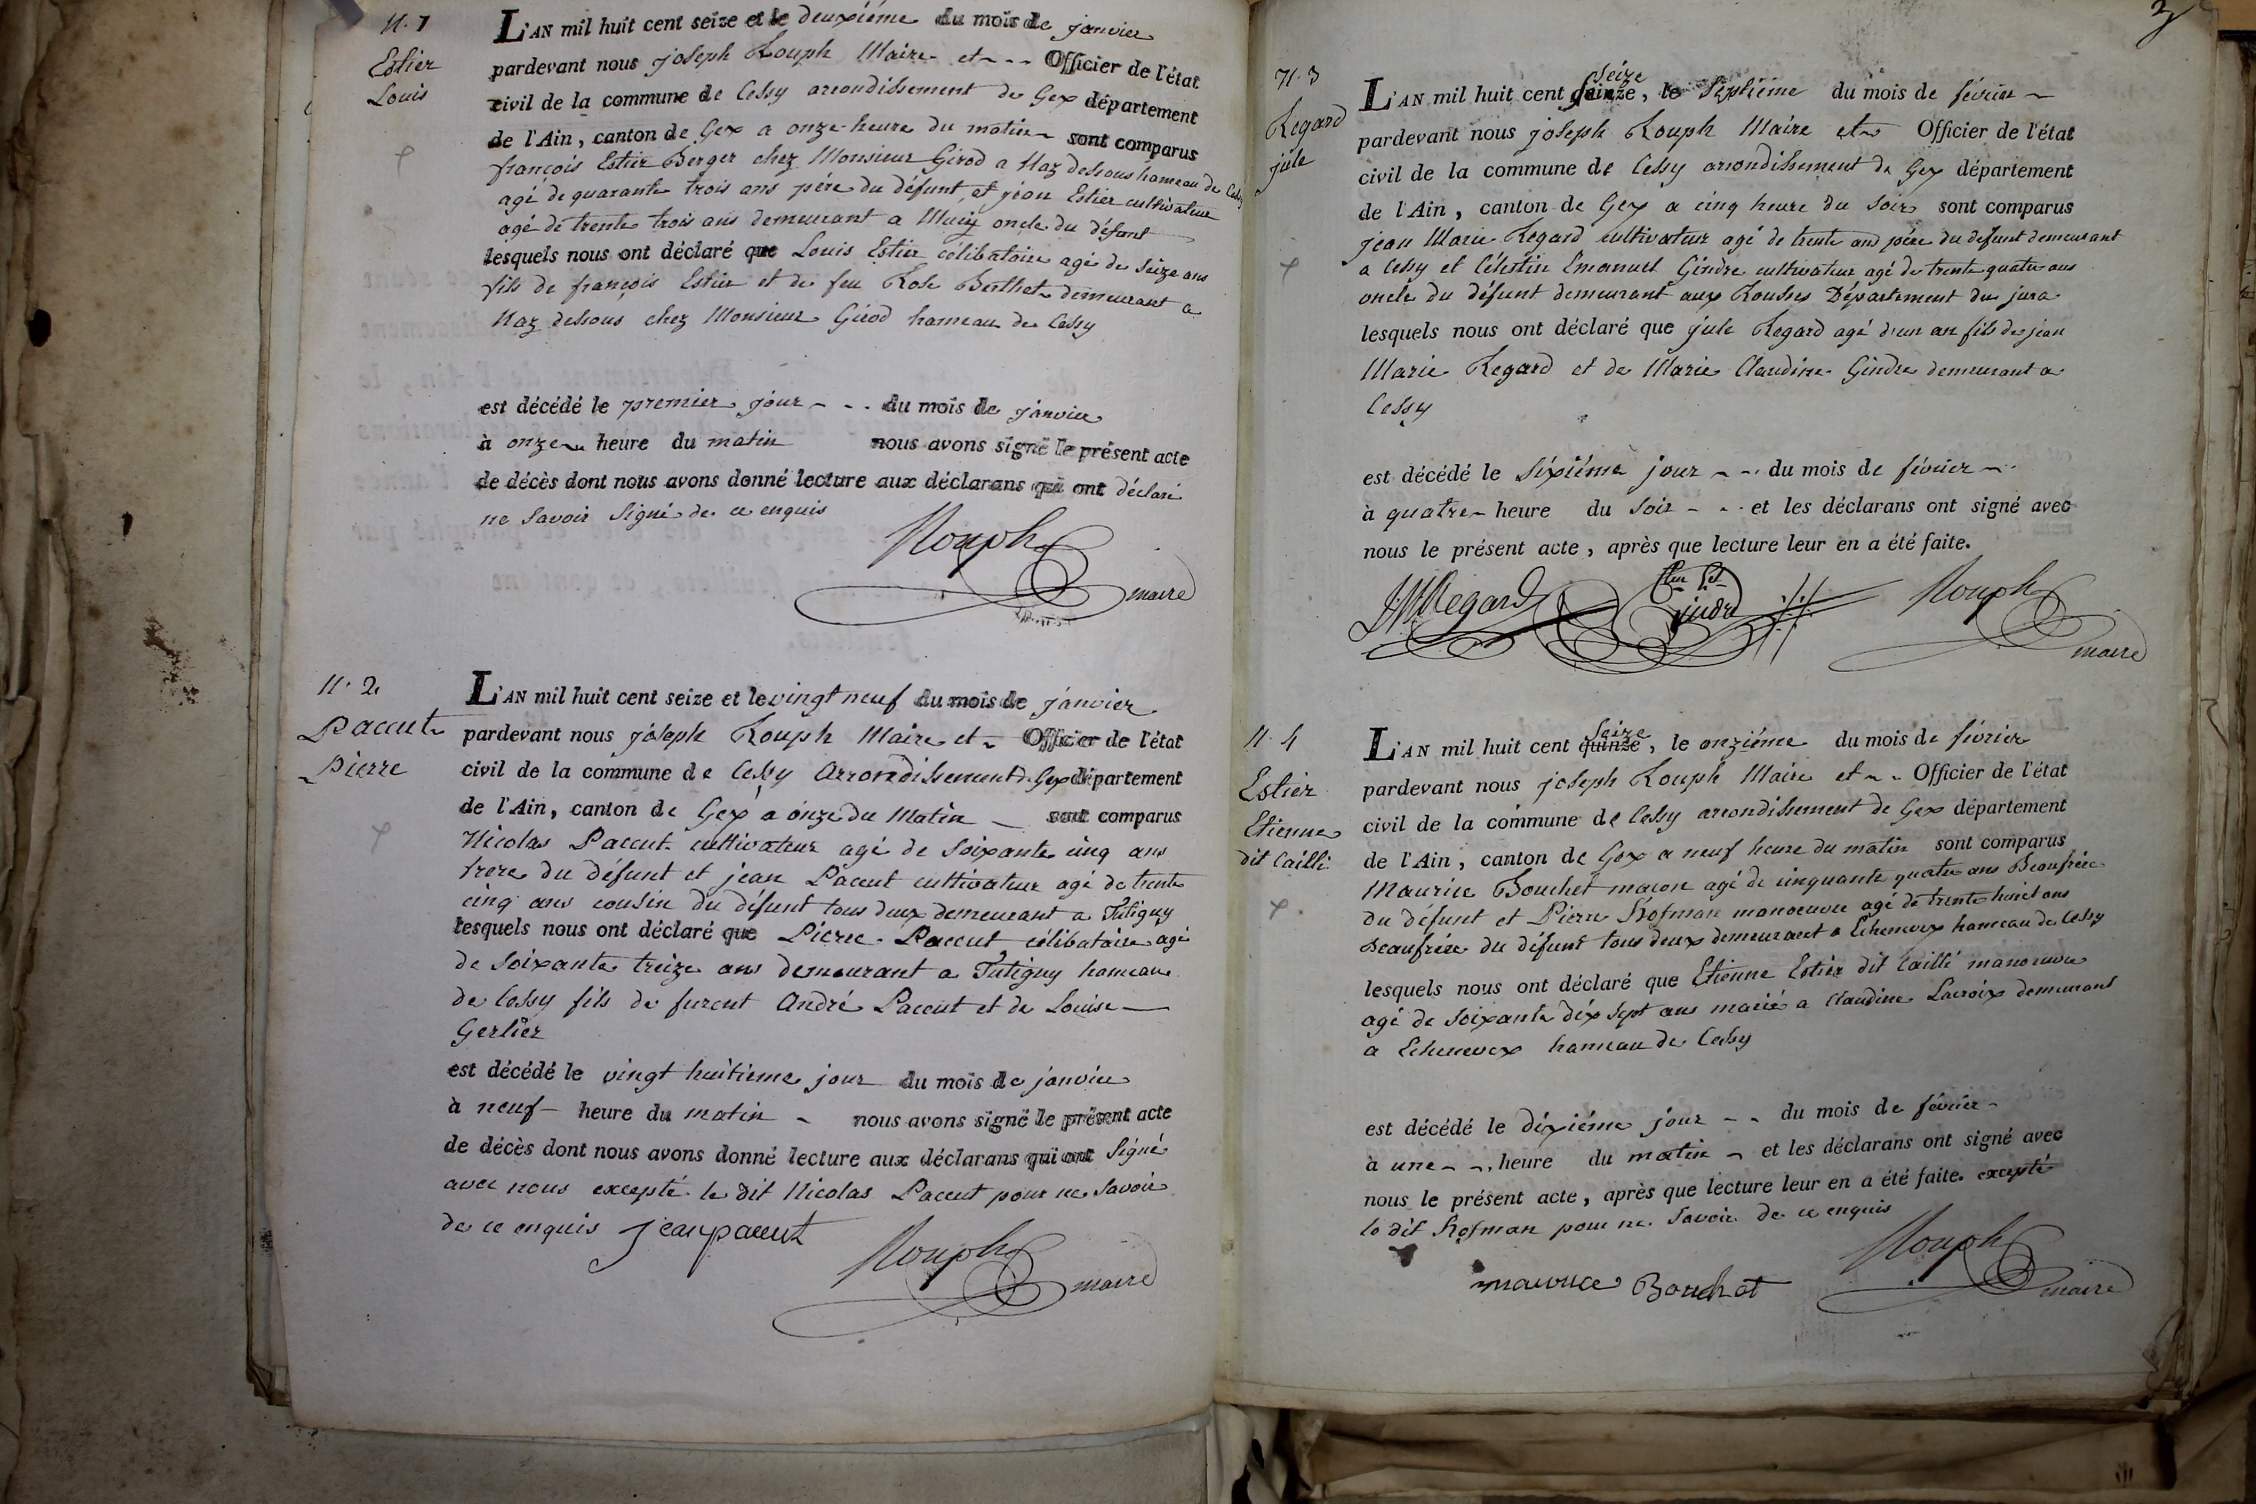 N. 1
Estier
Louis
L'AN mil huit cent seize et le deuxiéme du mois de janvier
pardevant nous joseph Rouph Maire et - - - Officier de l'état
civil de la commune de Cessy arrondissement de Gex département
de l'Ain, canton de Gex a onze heure du matin sont comparus
françois Estier Berger chez Monsieur Girod a Naz dessous hameau de Cessy
agé de quarante trois ans pére du défunt, et jean Estier cultivateur
agé de trente trois ans demeurant a oncle du défunt
lesquels nous ont déclaré que Louis Estier célibataire agé de seize ans
fils de françois Estier et de feu Rose Berthet demeurant a
Naz dessous chez Monsieur Girod hameau de Cessy
est décédé le premier jour - - . du mois de janvier
à onze heure du matin nous avons signé le présent acte
de décès dont nous avons donné lecture aux déclarans qui ont déclaré
ne savoir signé de ce enquis
Rouph
maire
N. 2
Paccut
Pierre
L'AN mil huit cent seize et le vingt neuf du mois de janvier
pardevant nous joseph Rouph Maire et Officier de l'état
civil de la commune de Cessy Arrondissement de Gex département
de l'Ain, canton de Gex a onze du Matin sont comparus
Nicolas Paccut cultivateur agé de soixante cinq ans
frere du défunt et jean Paccut cultivateur agé de trente
cinq ans cousin du défunt tous deux demeurant a Tutigny
lesquels nous ont déclaré que Pierre Paccut célibataire agé
de soixante treize ans demeurant a Tutigny hameau
de Cessy fils de furent André Paccut et de Louise
Gerlier
est décédé le vingt huitieme jour du mois de janvier
à neuf heure du matin nous avons signé le présent acte
de décès dont nous avons donné lecture aux déclarans qui ont signé
avec nous excepté le dit Nicolas Paccut pour ne savoir
de ce enquis jean paccut
Rouph
maire
3
N. 3
Regard
jule
seize
L'AN mil huit cent quinze, le septiéme du mois de février
pardevant nous joseph Rouph Maire et Officier de l'état
civil de la commune de Cessy arrondissement de Gex département
de l'Ain, canton de Gex a cinq heure du soir sont comparus
jean Marie Regard cultivateur agé de trente ans pére du défunt demeurant
a Cessy et Célestin Emanuel Gindre cultivateur agé de trente quatre ans
oncle du défunt demeurant aux Rousses Département du jura
lesquels nous ont déclaré que jule Regard agé d'un an fils de jean
Marie Regard et de Marie Claudine Gindre demeurant a
Cessy
est décédé le sixiéme jour - - . du mois de février
à quatre heure du soir - - . et les déclarans ont signé avec
nous le présent acte, après que lecture leur en a été faite.
JM Regard
Rouph
maire
N. 4
Estier
Etienne
dit Cailli
seize
L'AN mil huit cent quinze, le onziéme du mois de février
pardevant nous joseph Rouph Maire et - - Officier de l'état
civil de la commune de Cessy arrondissement de Gex département
de l'Ain, canton de Gex a neuf heure du matin sont comparus
Maurice Bouchet maçon agé de cinquante quatre ans Beaufrére
du défunt et Pierre Hofman manoeuvre agé de trente huit ans
Beaufrére du défunt tous deux demeurant a Echenevex hameau de Cessy
lesquels nous ont déclaré que Etienne Estier dit Cailli manoeuvre
agé de soixante dix sept ans marié a Claudine Lacroix demeurant
a Echenevex hameau de Cessy
est décédé le dixiéme jour - - du mois de février
à une - - . heure du matin et les déclarans ont signé avec
nous le présent acte, après que lecture leur en a été faite. excepté
le dit Hofman pour ne savoir de ce enquis
Rouph
maire
maurice Bouchet